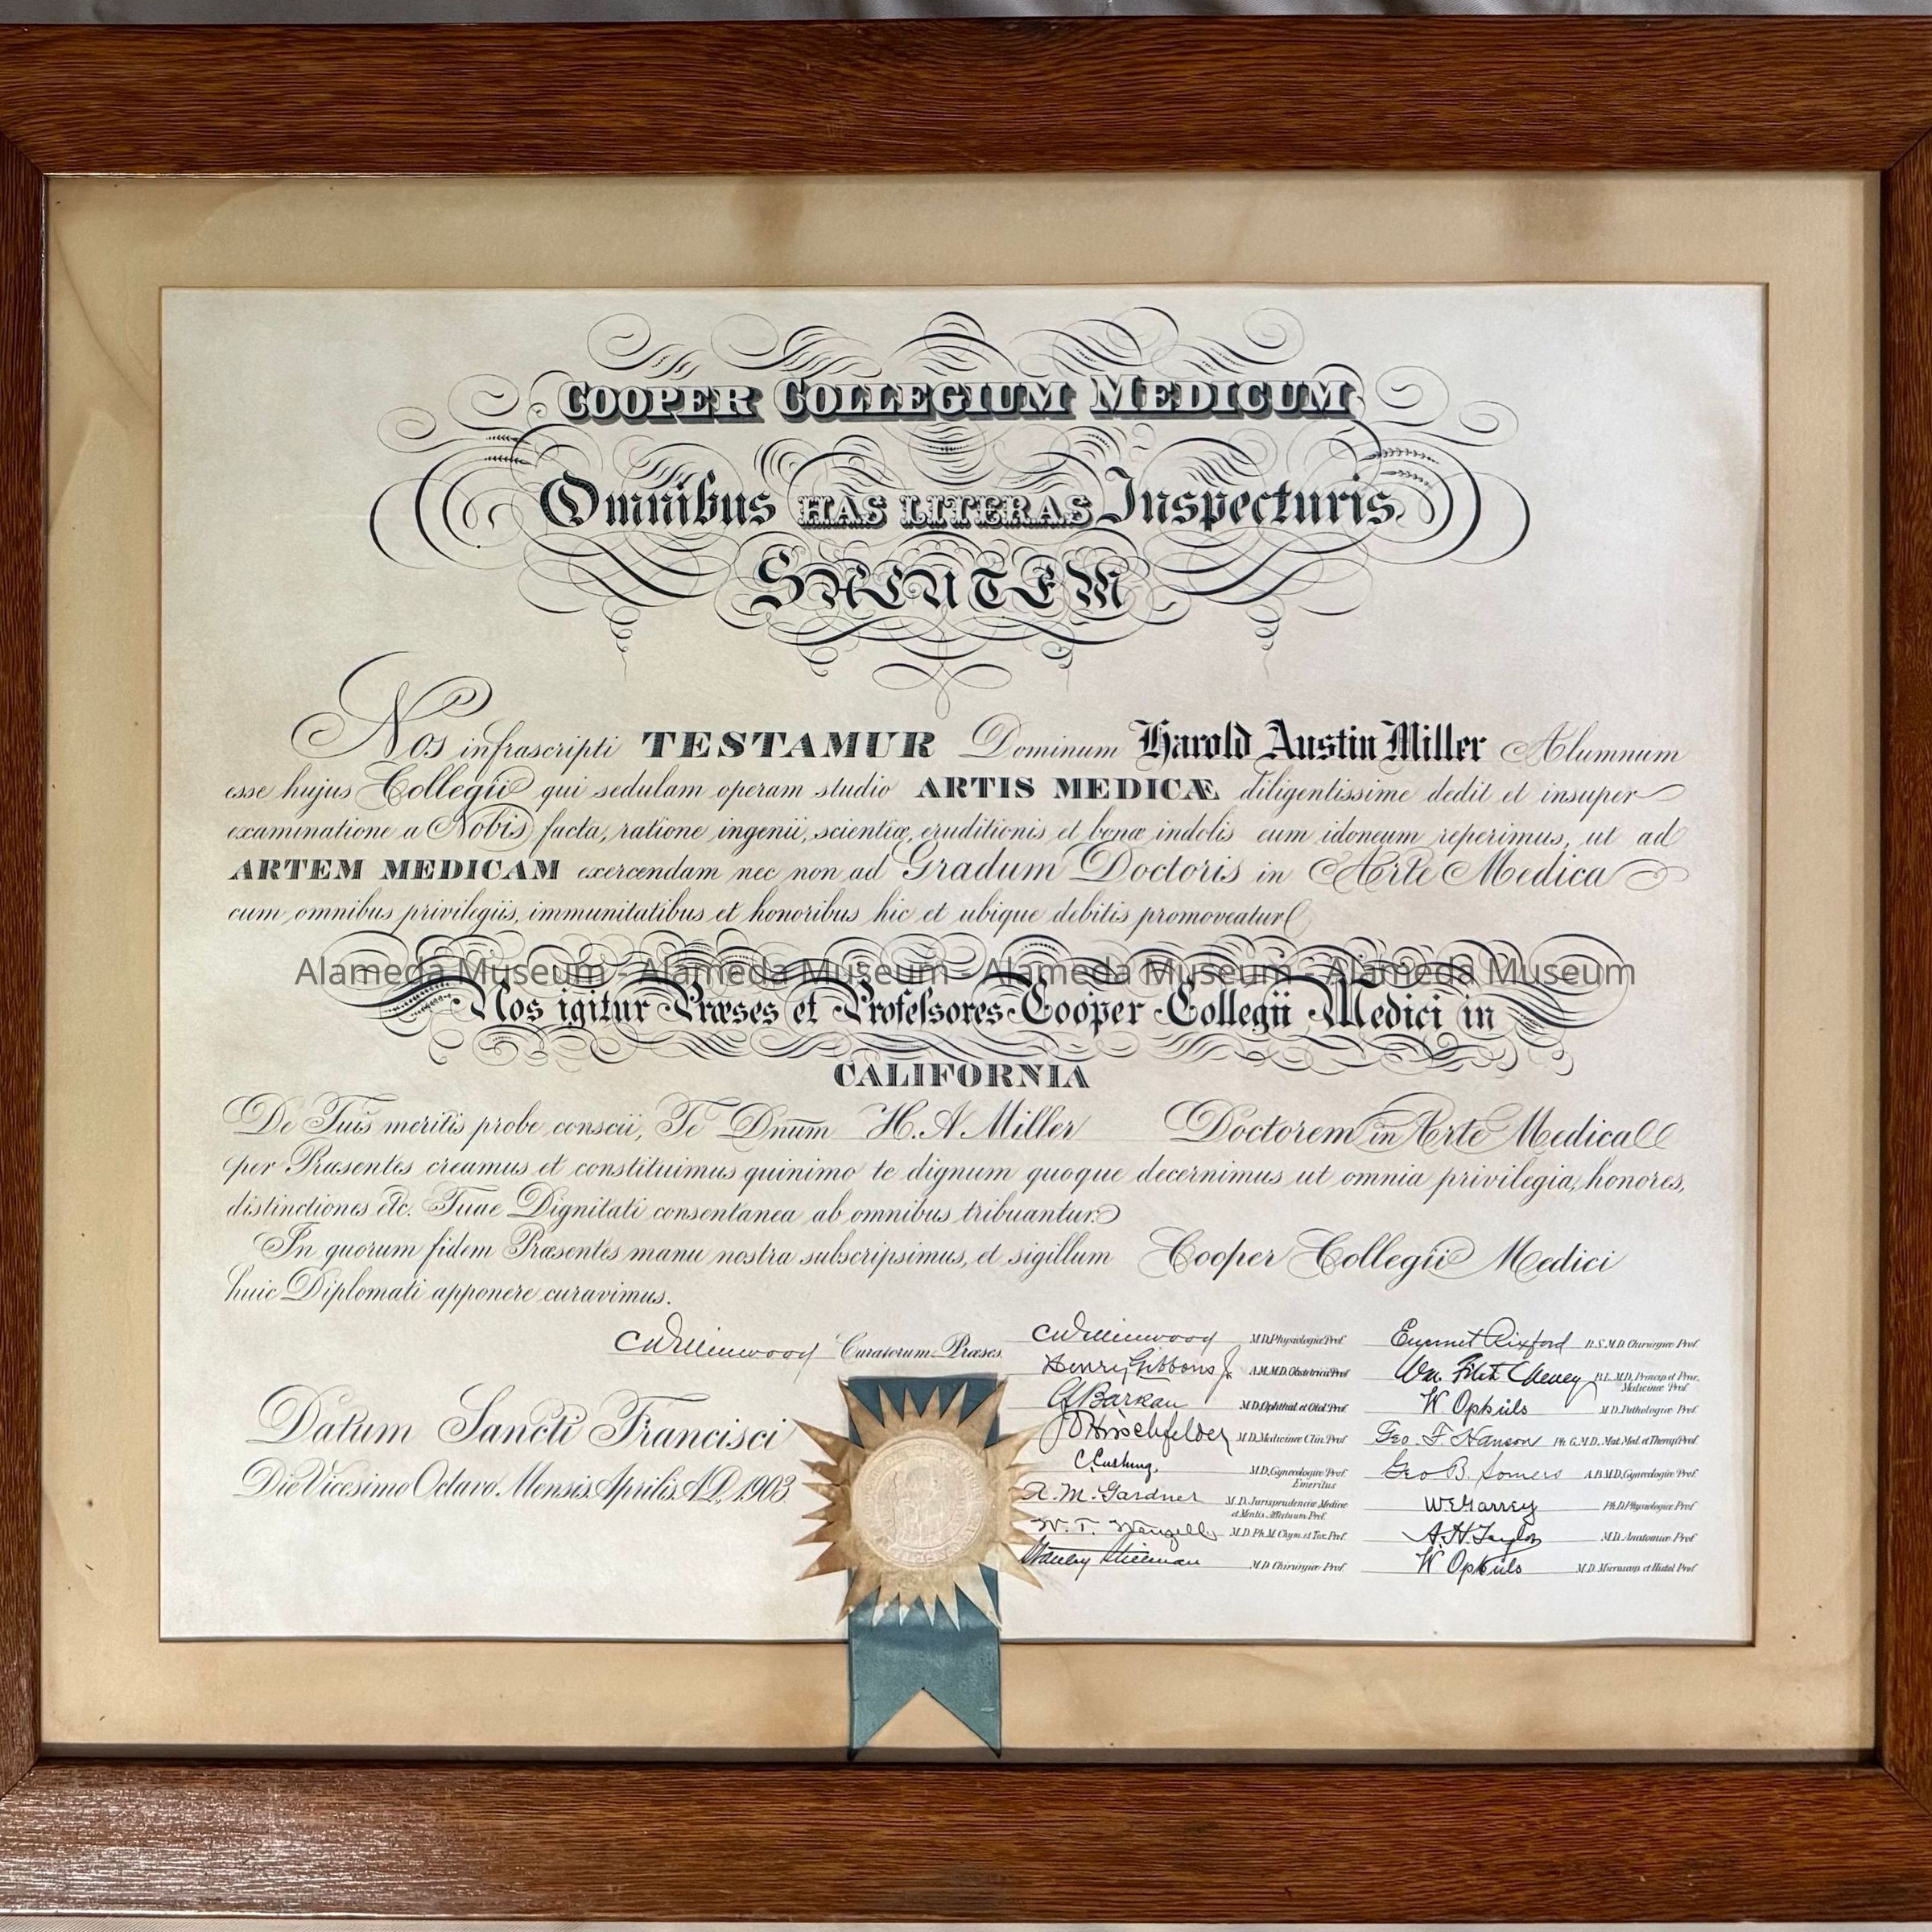 COOPER COLLEGIUM MEDICUM
Omnibus HAS LITERAS Inspecturis
SALUTEM
Nos infrascripti TESTAMUR Dominum Harold Austin Miller Alumnum
esse hujus Collegii qui sedulam operam studio ARTIS MEDICÆ diligentissime dedit et insuper
examinatione a Nobis facta, ratione ingenii, scientiæ, eruditionis et bonæ indolis eum idoneum reperimus, ut ad
ARTEM MEDICAM exercendam nec non ad Gradum Doctoris in Arte Medica
cum omnibus privilegiis, immunitatibus et honoribus hic et ubique debitis promoveatur
Alameda Museum - Alameda Museum - Alameda Museum - Alameda Museum
Nos igitur Præses et Professores Cooper Collegii Medici in
CALIFORNIA
De Tuis meritis probe conscii, Te Dnum H. A. Miller Doctorem in Arte Medica
per Præsentes creamus et constituimus quinimo te dignum quoque decernimus ut omnia privilegia, honores,
distinctiones etc. Tuae Dignitati consentanea ab omnibus tribuantur.
In quorum fidem Præsentes manu nostra subscripsimus, et sigillum Cooper Collegii Medici
huic Diplomati apponere curavimus.
C W Ellinwood Curatorum Præses.
Datum Sancti Francisci
Die Vicesimo Octavo Mensis Aprilis A.D. 1903
C W Ellinwood M.D. Physiologiæ Prof.
Henry Gibbons Jr. A.M. M.D. Obstetricæ Prof
A Barkan M.D. Ophthal. et Otol. Prof.
J O Hirschfelder M.D. Medicinæ Clin. Prof
C. Cushing. M.D. Gynecologiæ Prof. Emeritus
A. M. Gardner M.D. Jurisprudenciæ Medicæ et Mentis Prof.
W. T. Wenzell M.D. Ph.M. Chym. et Tox. Prof.
Stanley Stillman M.D. Chirurgiæ Prof.
Emmet Rixford B.S. M.D. Chirurgiæ Prof.
Wm. Fitch Cheney B.L. M.D. Princip. et Prac. Medicinæ Prof
W Ophüls M.D. Pathologiæ Prof.
Geo. F. Hanson Ph. G. M.D. Mat. Med. et Therap. Prof.
Geo B. Somers A.B. M.D. Gynecologiæ Prof.
W E Garrey Ph.D. Physiologiæ Prof
A. H. Taylor M.D. Anatomiæ Prof.
W Ophüls M.D. Microscop. et Histol. Prof